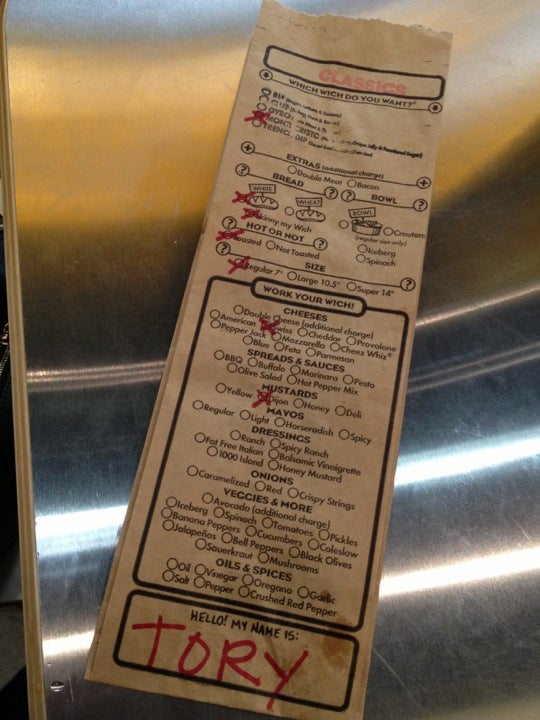 CLASSICS
WHICH WICH DO YOU WANT?®
BLT
CLUB
GYRO
MONTE CRISTO Grape Jelly & Powdered Sugar)
FRENCH DIP
EXTRAS (additional charge)
Double Meat Bacon
BREAD BOWL
WHITE WHEAT BOWL Croutons
(regular size only)
Skinny my Wich Iceberg
HOT OR NOT Spinach
Toasted Not Toasted
SIZE
Regular 7" Large 10.5" Super 14"
WORK YOUR WICH!
CHEESES
Double Cheese (additional charge)
American Swiss Cheddar Provolone
Pepper Jack Mozzarella Cheez Whiz®
Blue Feta Parmesan
SPREADS & SAUCES
BBQ Buffalo Marinara Pesto
Olive Salad Hot Pepper Mix
MUSTARDS
Yellow Dijon Honey Deli
MAYOS
Regular Light Horseradish Spicy
DRESSINGS
Ranch Spicy Ranch
Fat Free Italian Balsamic Vinaigrette
1000 Island Honey Mustard
ONIONS
Caramelized Red Crispy Strings
VEGGIES & MORE
Avocado (additional charge)
Iceberg Spinach Tomatoes Pickles
Banana Peppers Cucumbers Coleslaw
Jalapeños Bell Peppers Black Olives
Sauerkraut Mushrooms
OILS & SPICES
Oil Vinegar Oregano Garlic
Salt Pepper Crushed Red Pepper
HELLO! MY NAME IS:
TORY